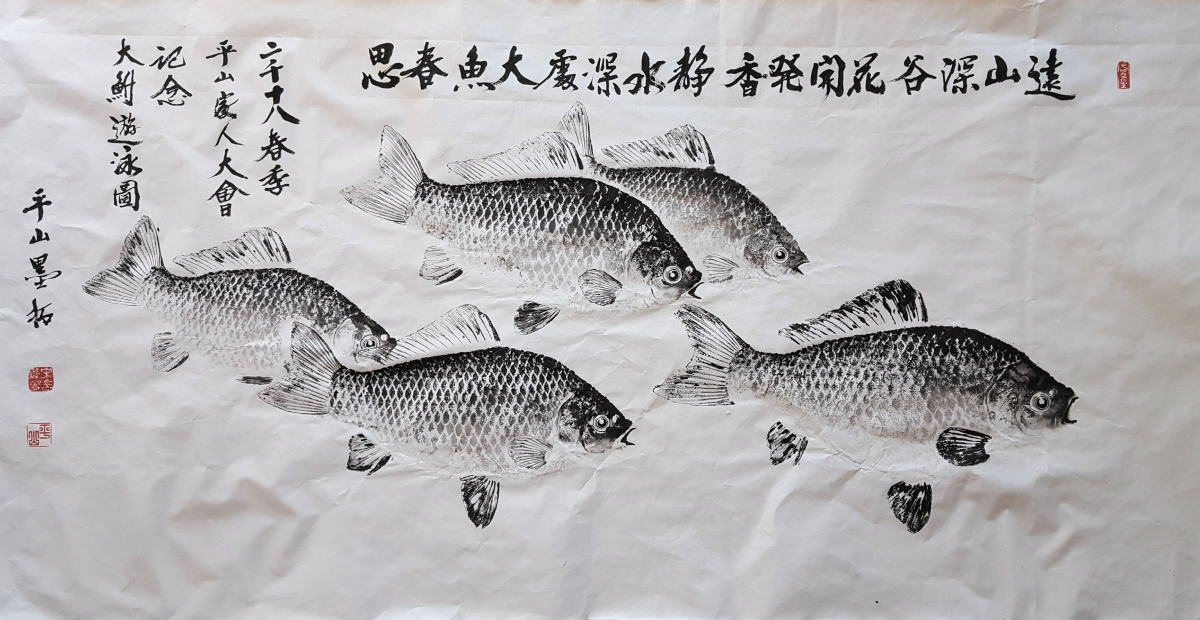 遠山深谷花開発香靜水深處大魚春思
二千十八春季
平山家人大會
記念
大鮒遊泳圖
平山墨拓
平山